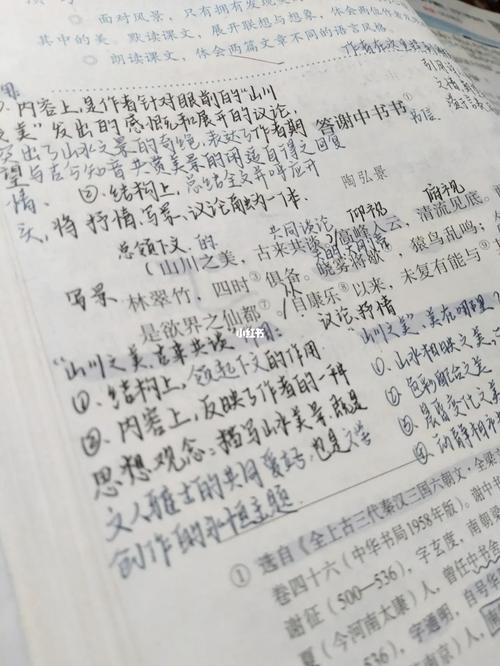 面对风景，只有拥有发现美
其中的美。默读课文，展开联想与想象，体会两位作者
朗读课文，体会两篇文章不同的语言风格。
内容上，是作者针对眼前的“山川
之美”发出的感慨和展开的议论，
突出了山水之景的奇绝，表达了作者期
望与古今知音共赏美景的闲适自得之
情。②结构上，总结全文并呼应开
头，将抒情、写景、议论融为一体。
答谢中书书①
书信
陶弘景
总领下文 的
共同谈论
仰视
俯视
山川之美，古来共谈。高峰入云，清流见底。
写景
林翠竹，四时③俱备。晓雾将歇④，猿鸟乱鸣；
议论，抒情
是欲界之仙都⑦。自康乐⑧以来，未复有能与⑨
小红书
“山川之美，古来共谈”
①结构上，领起下文的作用
②内容上，反映了作者的一种
思想观念：描写山水美景，既是
文人雅士的共同爱好，也是文学
创作的永恒主题
“山川之美”，美在哪里？
①山水相映之美
②色彩配合之美
③晨昏变化之美
④动静相
①选自《全上古三代秦汉三国六朝文·全梁文
卷四十六（中华书局1958年版）。谢中书
谢征（500—536），字玄度，南朝梁
夏（今河南太康）人，曾任中书
536），字通明，自号
南京）人，